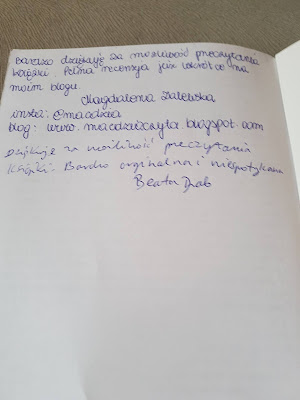 Bardzo dziękuję za możliwość przeczytania
książki. Pełna recenzja już wkrótce na
moim blogu.
Magdalena Zalewska
insta: @macdzia
blog: www. macdziaczyta. blogspot. com
Dziękuję za możliwość przeczytania
książki. Bardzo oryginalna i niespotykana
Beata